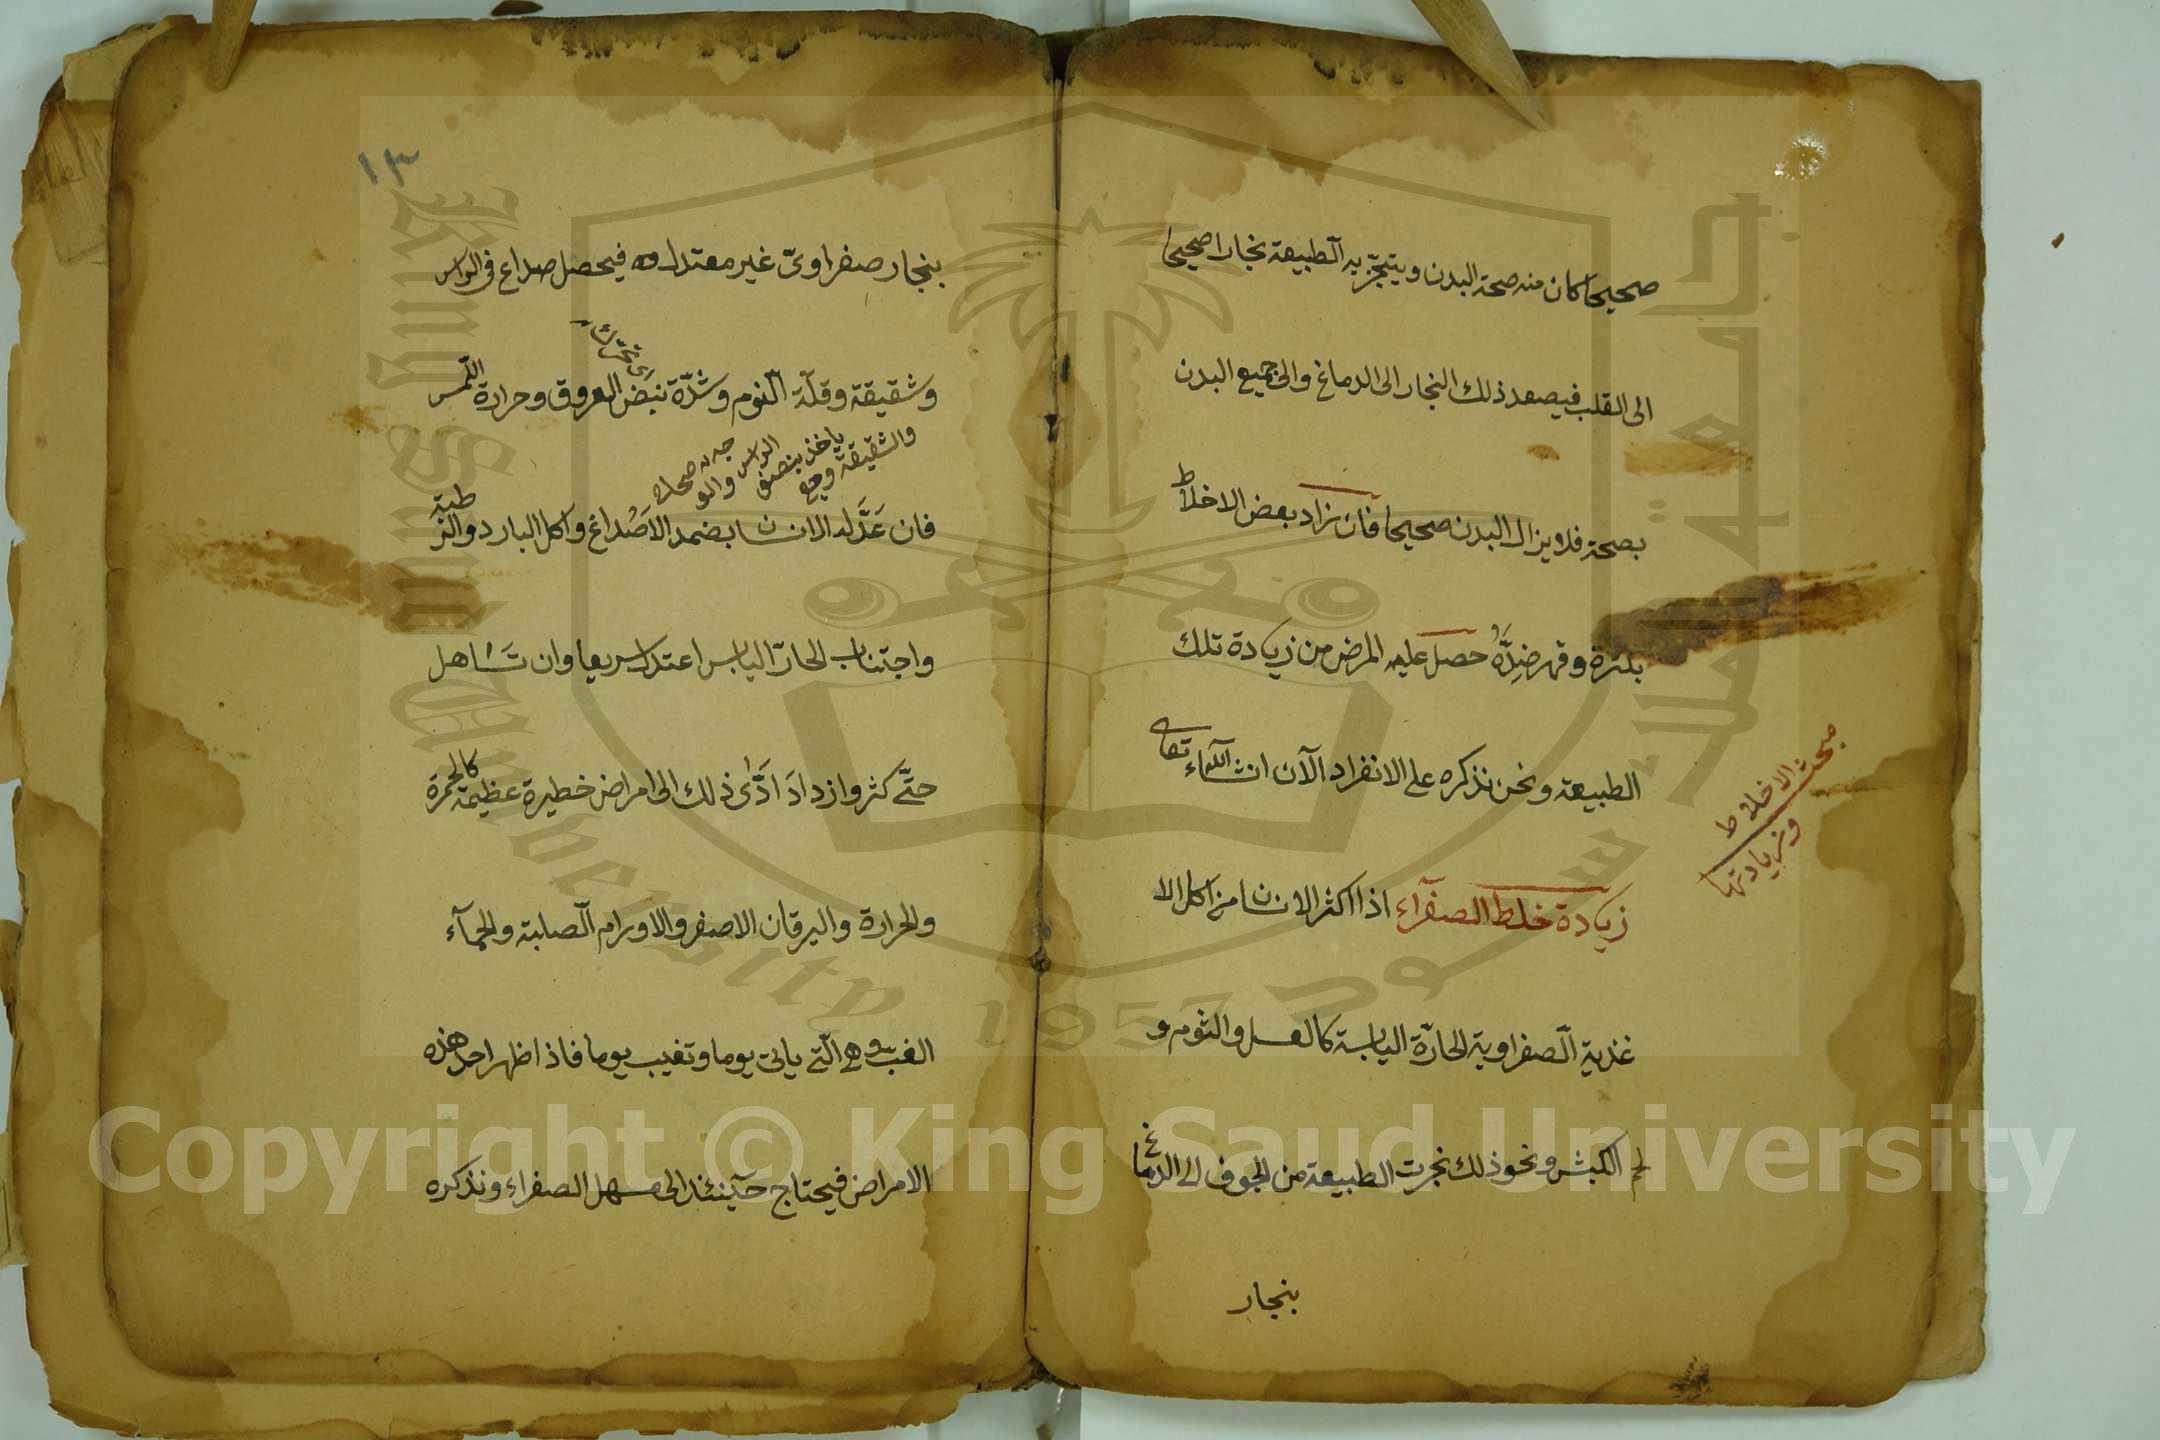 صحيحا كان منه صحة البدن ويتبخر به الطبيعة بخارا صحيحا
الى القلب فيصعد ذلك البخار الى الدماغ والى جميع البدن
بصحة فلا يزال البدن صحيحا فان زاد بعض الاخلاط
بكثرة وقهر ضده حصل عليه المرض من زيادة تلك
الطبيعة ونحن نذكره على الانفراد الآن انشاء الله تعالى
زيادة خلط الصفرآء اذا اكثر الانسان من اكل الا
غذية الصفراوية الحارّة اليابسة كالعسل والثوم و
لحم الكبش ونحو ذلك بخرت الطبيعة من الجوف الى الدماغ
بنجار
مبحث الاخلاط
وزيادتها
١٣
بنجار صفراوىّ غير معتدل فيحصل صداع فى الراس
وشقيقة وقلّة النوم وشدّة نبض العروق وحرارة اللمس
اى تحرك
والشقيقة وجع
ياخذ بنصف الراس
والوجه صحاح
فان عَدَّله الانسان بضمد الاَصْداغ واكل البارد والرطبة
واجتناب الحارّ اليابس اعتدل سريعا وان تَسَاهل
حتَّى كثر وازدادَ ادَّى ذلك الى امراض خطيرة عظيمة كالحمرة
والحرارة واليرقان الاصفر والاورام الصلبة والحمآء
الغب وهى الّتى ياتى يوما وتغيب يوما فاذا ظهر احد هذه
الامراض فيحتاج حينئذ الى مسهل الصفراء ونذكره
Copyright © King Saud University
King Saud University 1957
جامعة الملك سعود